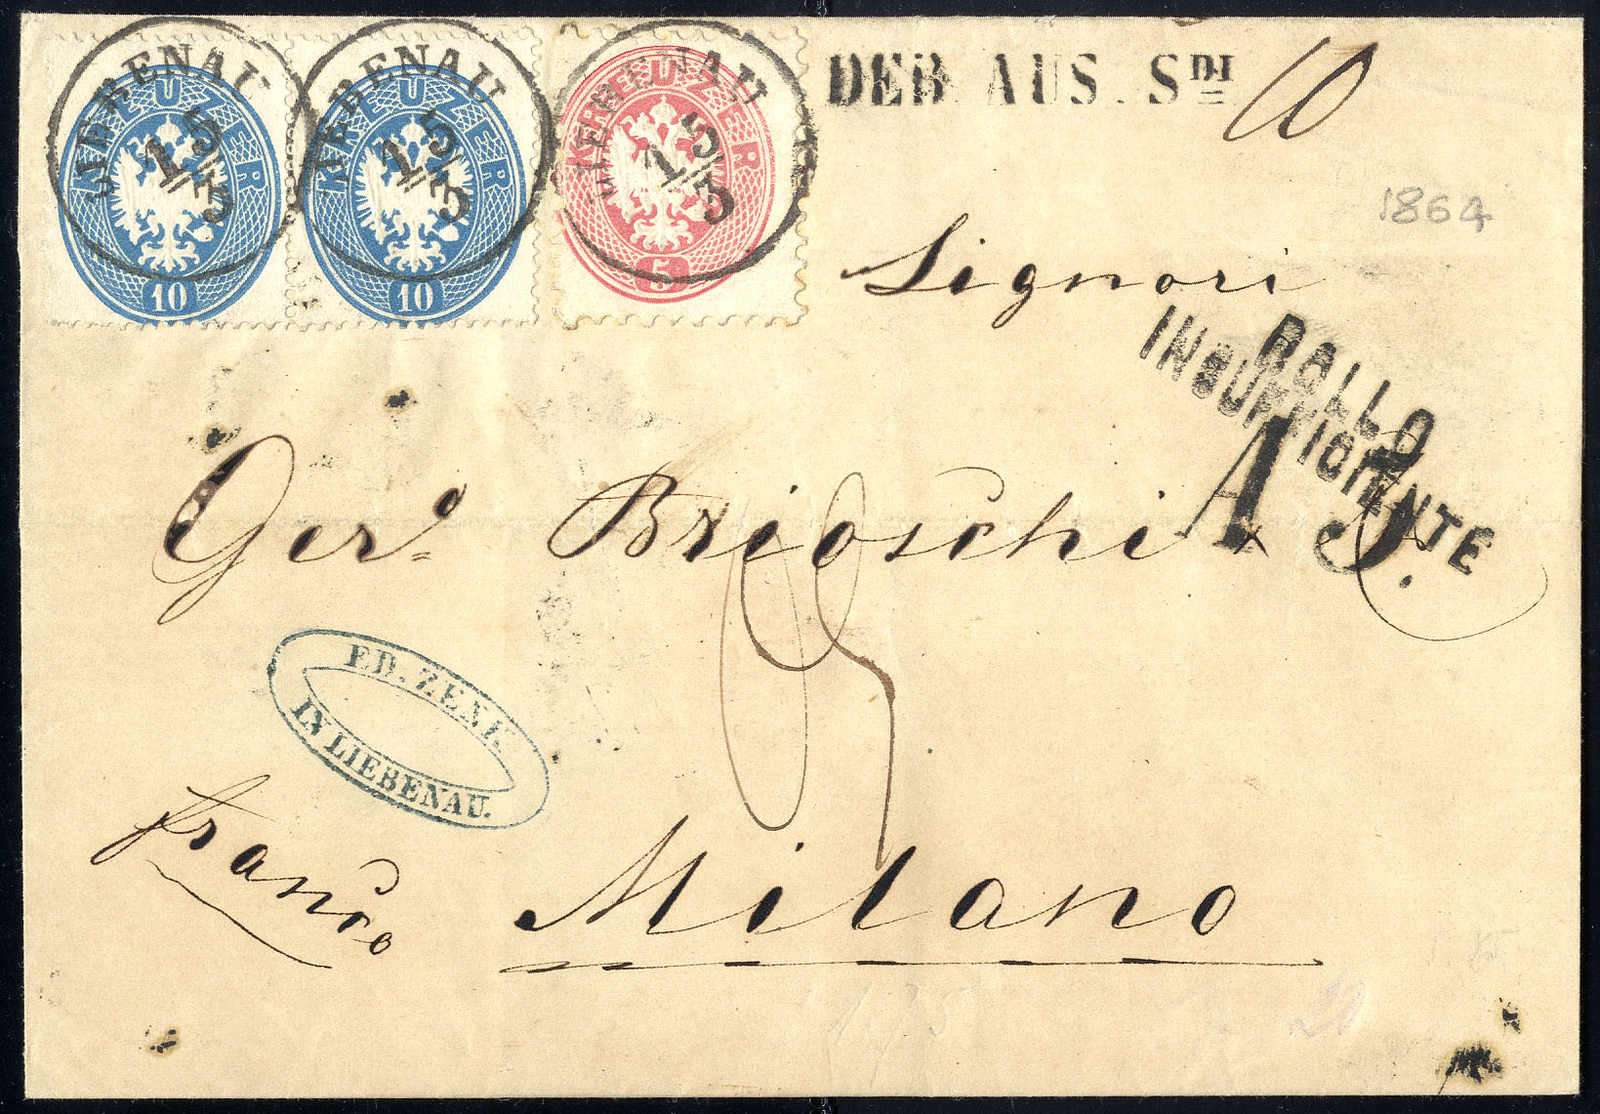 KREUZER 10
LIEBENAU 15/3
KREUZER 10
LIEBENAU 15/3
KREUZER 5
LIEBENAU 15/3
DEB. AUS. SDI 10
1864
Signori
BOLLO
INSUFFICIENTE
Ger.o Brioschi
A.D.
ED. ZENK.
IN LIEBENAU.
franco
Milano
20